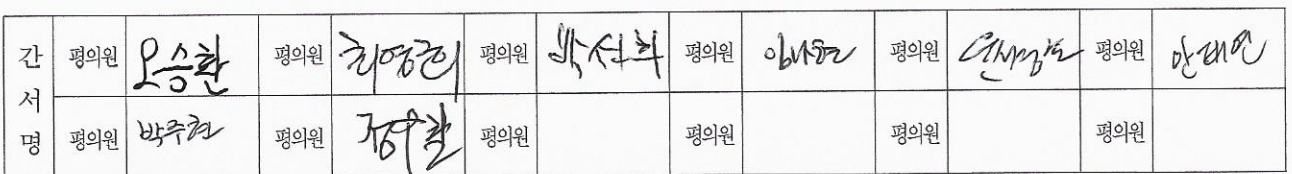 간 평의원 오승환 평의원 최영근 평의원 박석희 평의원 평의원 평의원 안태연
서
명 평의원 박주현 평의원 평의원 평의원 평의원 평의원